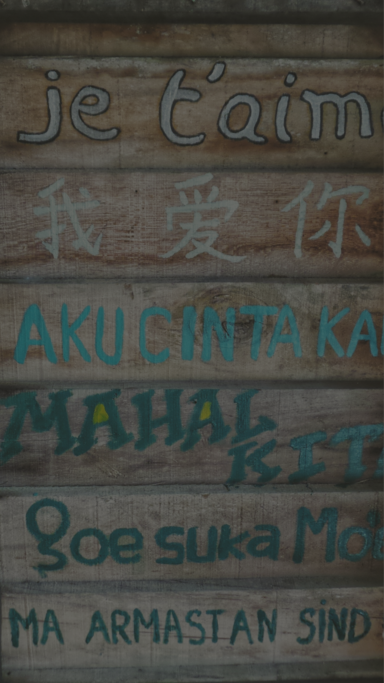 je t'aim
我爱你
AKU CINTA KA
MAHAL
KITA
goe suka Moi
MA ARMASTAN SIND